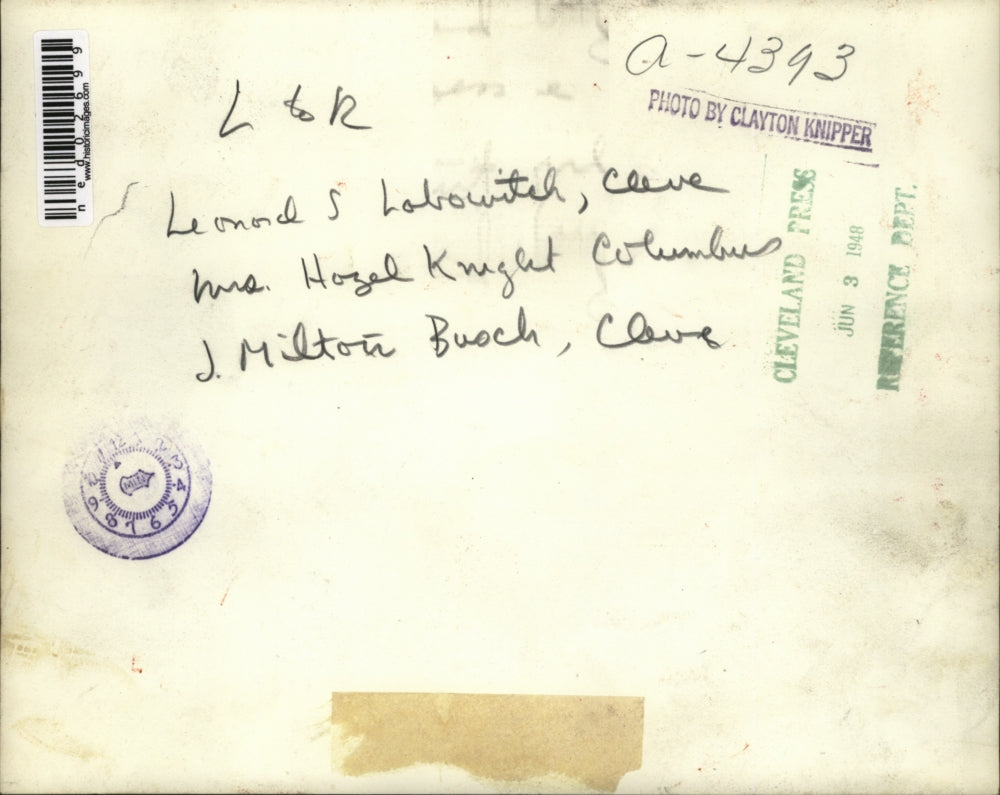 a-4393
PHOTO BY CLAYTON KNIPPER
L to R
Leonard S Labowitch, Cleve
Mrs. Hazel Knight Columbus
J. Milton Busch, Cleve
CLEVELAND PRESS
JUN 3 1948
REFERENCE DEPT.
ned02699
www.historicimages.com
12 1 2 3 4 5 6 7 8 9 10 11
MIN